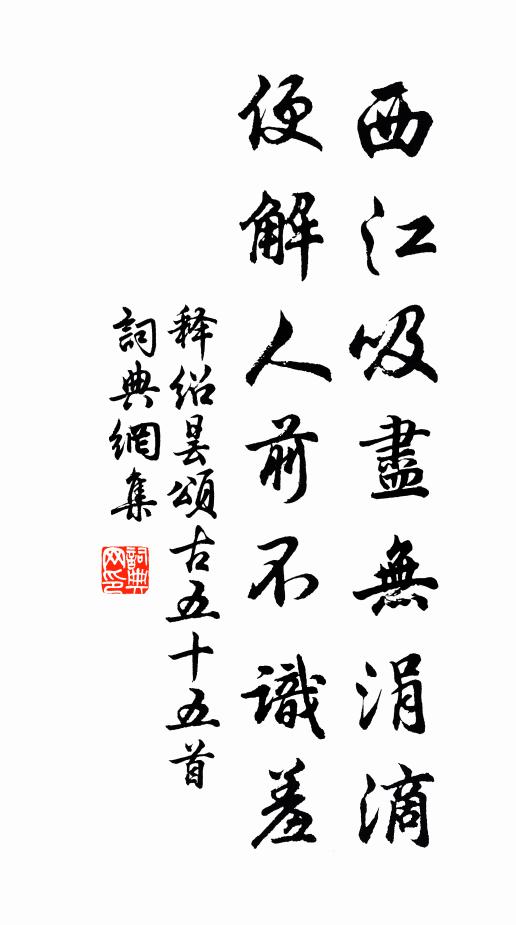 西江吸盡無涓滴
便解人前不識羞
释紹曇頌古五十五首
詞典網集
詞典網印